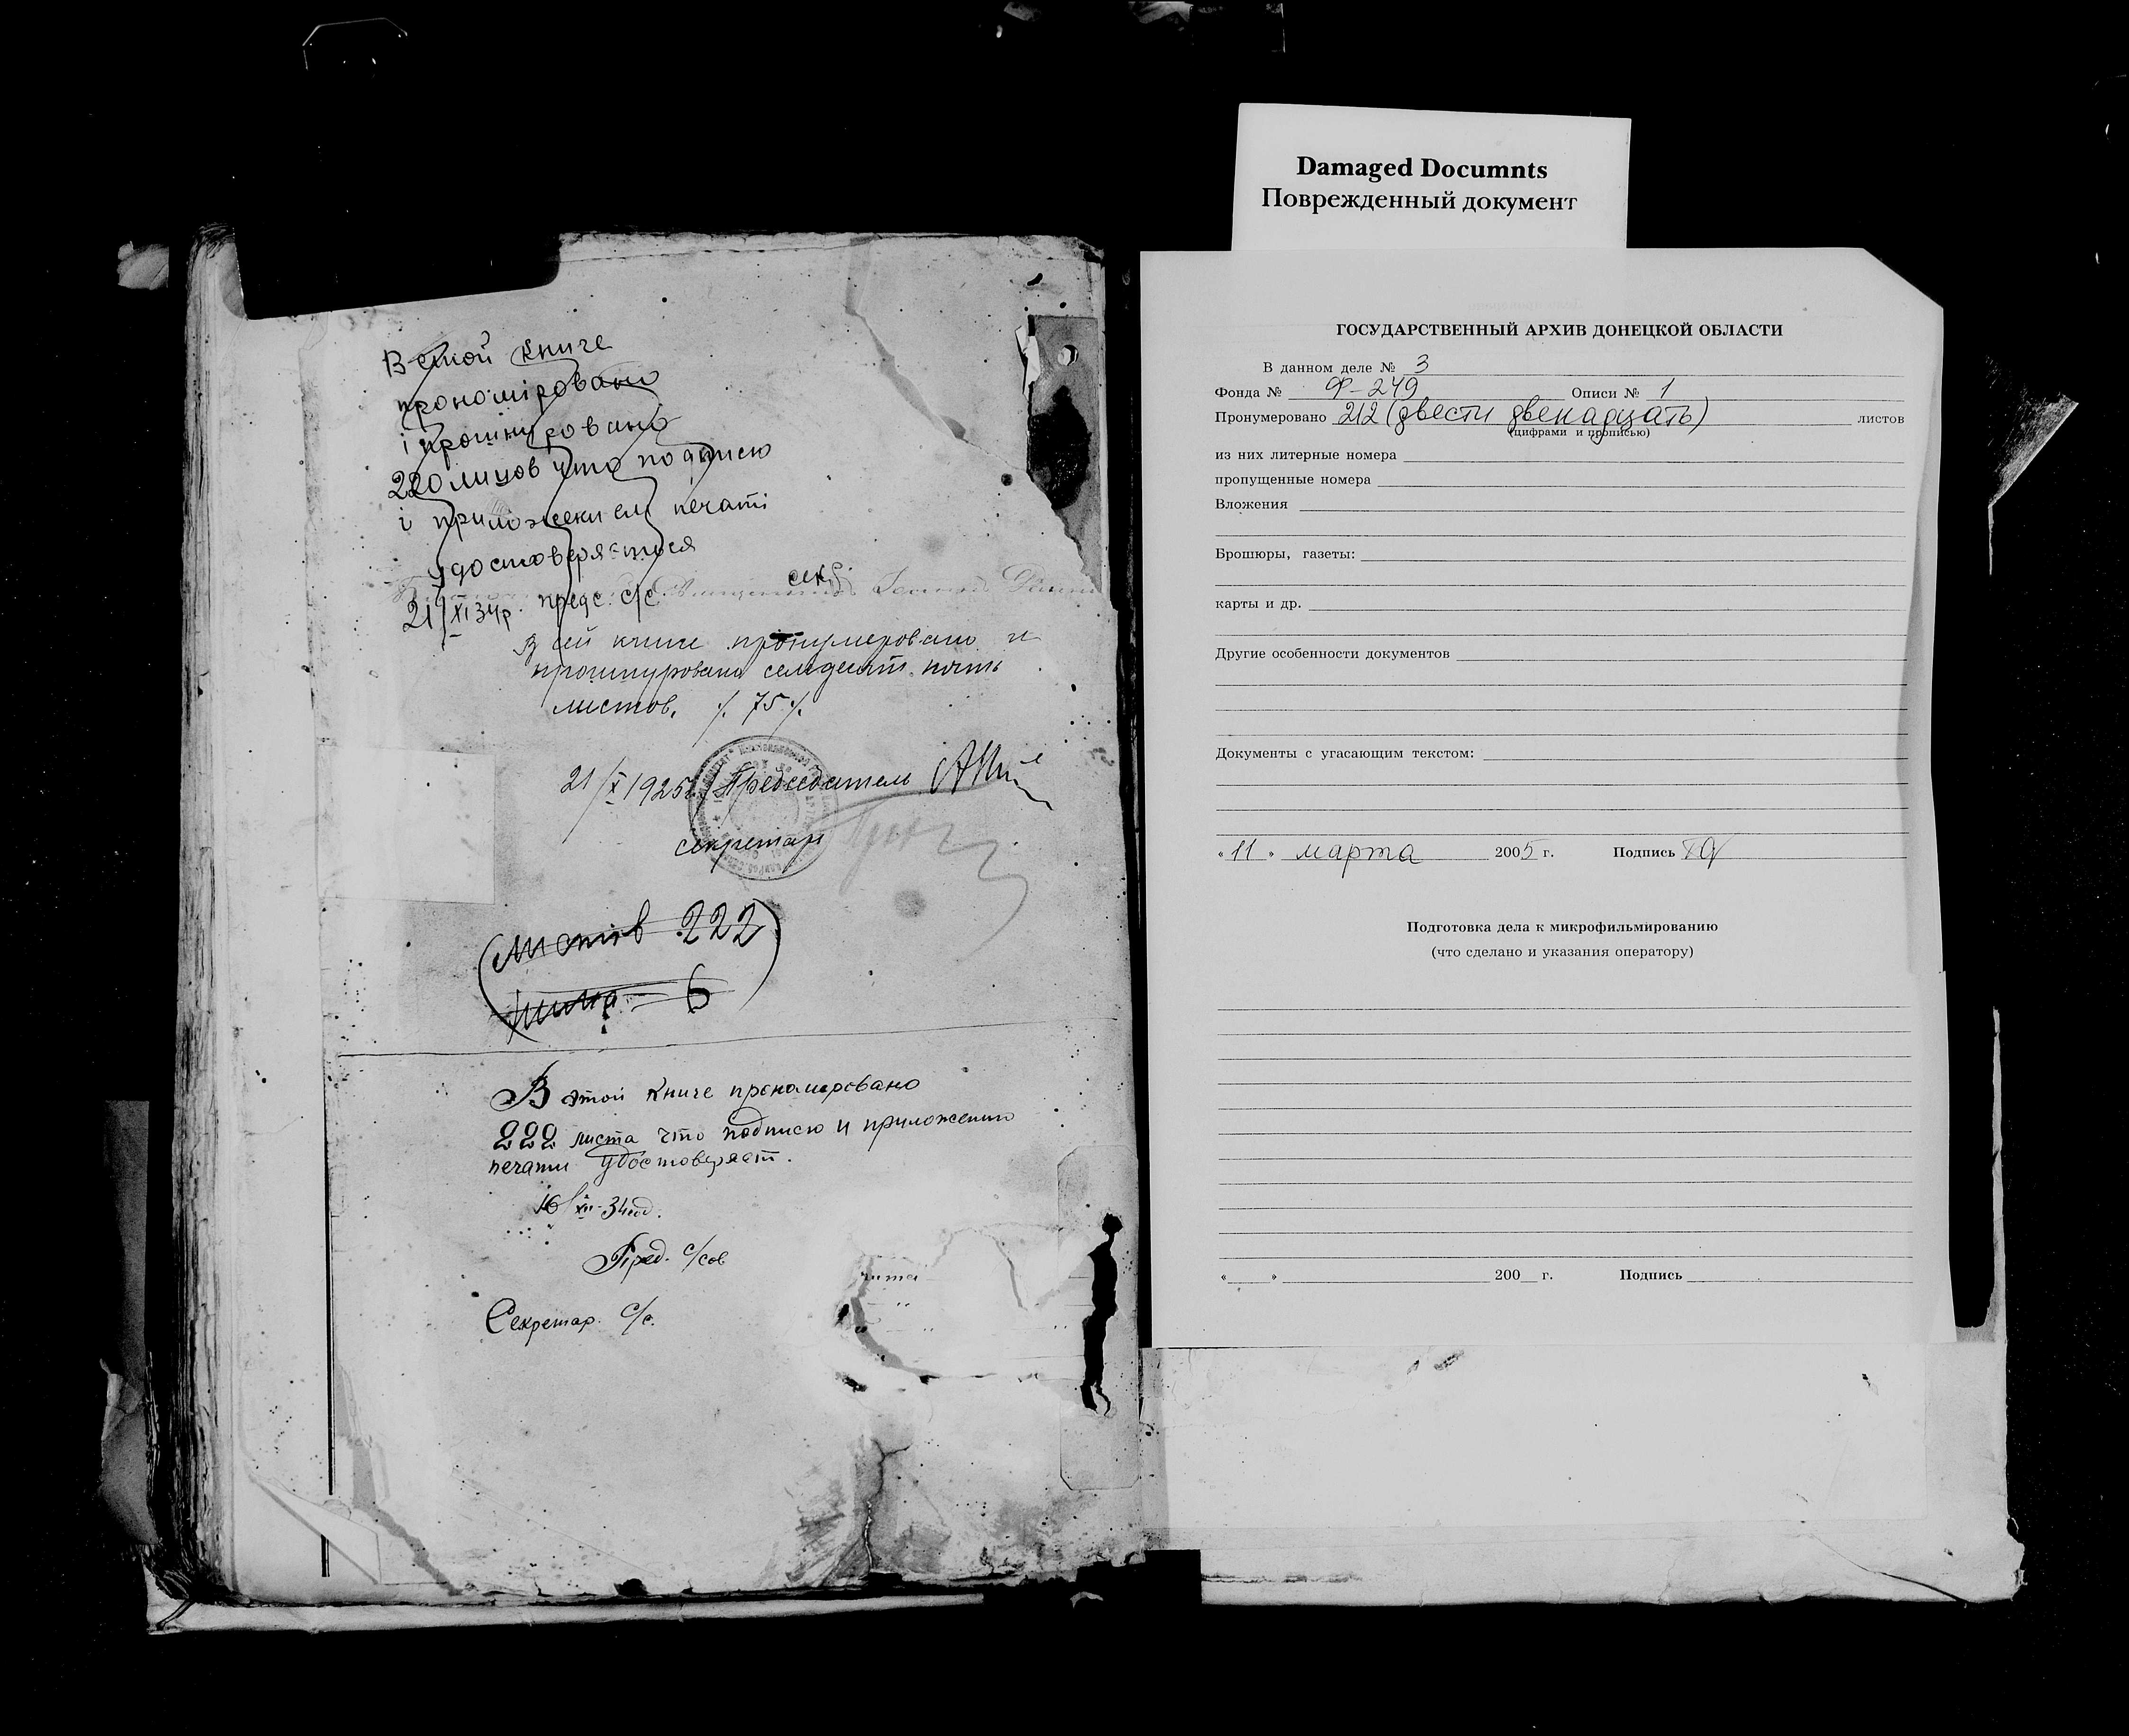 В етой книге
прономіровано
і прошнуровано
220 лицов што подписю
і приложекием печаті
удостоверяется
21/XI 34р. предс. с/с секр.
В сей книге пронумеровано и
прошнуровано семдесят. пять
листов. ./. 75 ./.
21/X 1925г. Председатель
секретарь
(листов 222
6)
В этой книге прономеровано
222 листа что подписю и приложению
печати удостоверяет.
16/XII-34год.
Пред. с/сов
Секретар. с/с.
Damaged Documnts
Поврежденный документ
ГОСУДАРСТВЕННЫЙ АРХИВ ДОНЕЦКОЙ ОБЛАСТИ
В данном деле № 3
Фонда № Ф-249 Описи № 1
Пронумеровано 212 (двести двенадцать) листов
(цифрами и прописью)
из них литерные номера
пропущенные номера
Вложения
Брошюры, газеты:
карты и др.
Другие особенности документов
Документы с угасающим текстом:
« 11 » марта 2005 г. Подпись
Подготовка дела к микрофильмированию
(что сделано и указания оператору)
« » 200 г. Подпись